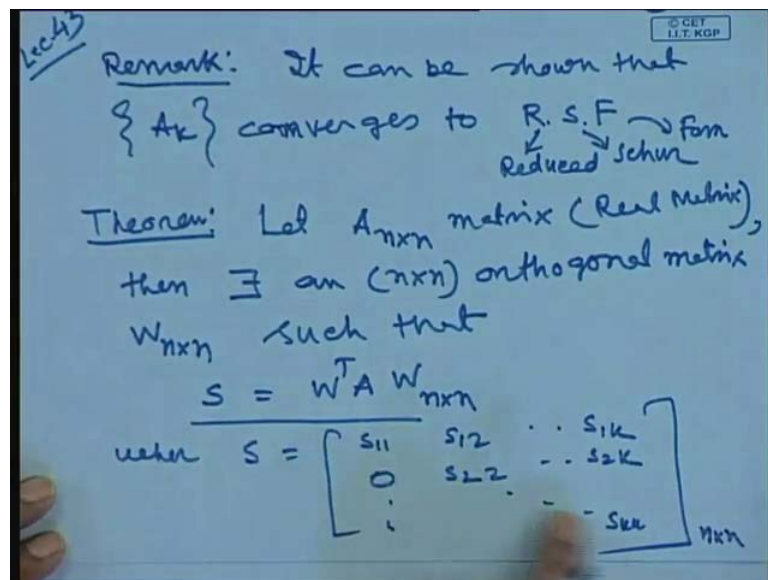 Lec-43
© CET
I.I.T. KGP
Remark: It can be shown that
{ A_k } converges to R. S. F → Form
Reduced Schur
Theorem: Let A_{n×n} matrix (Real Matrix),
then ∃ an (n×n) orthogonal matrix
W_{n×n} such that
S = W^T A W_{n×n}
when S = [ S_{11} S_{12} .. S_{1k}
0 S_{22} .. S_{2k}
: . - - S_{kk} ]_{n×n}